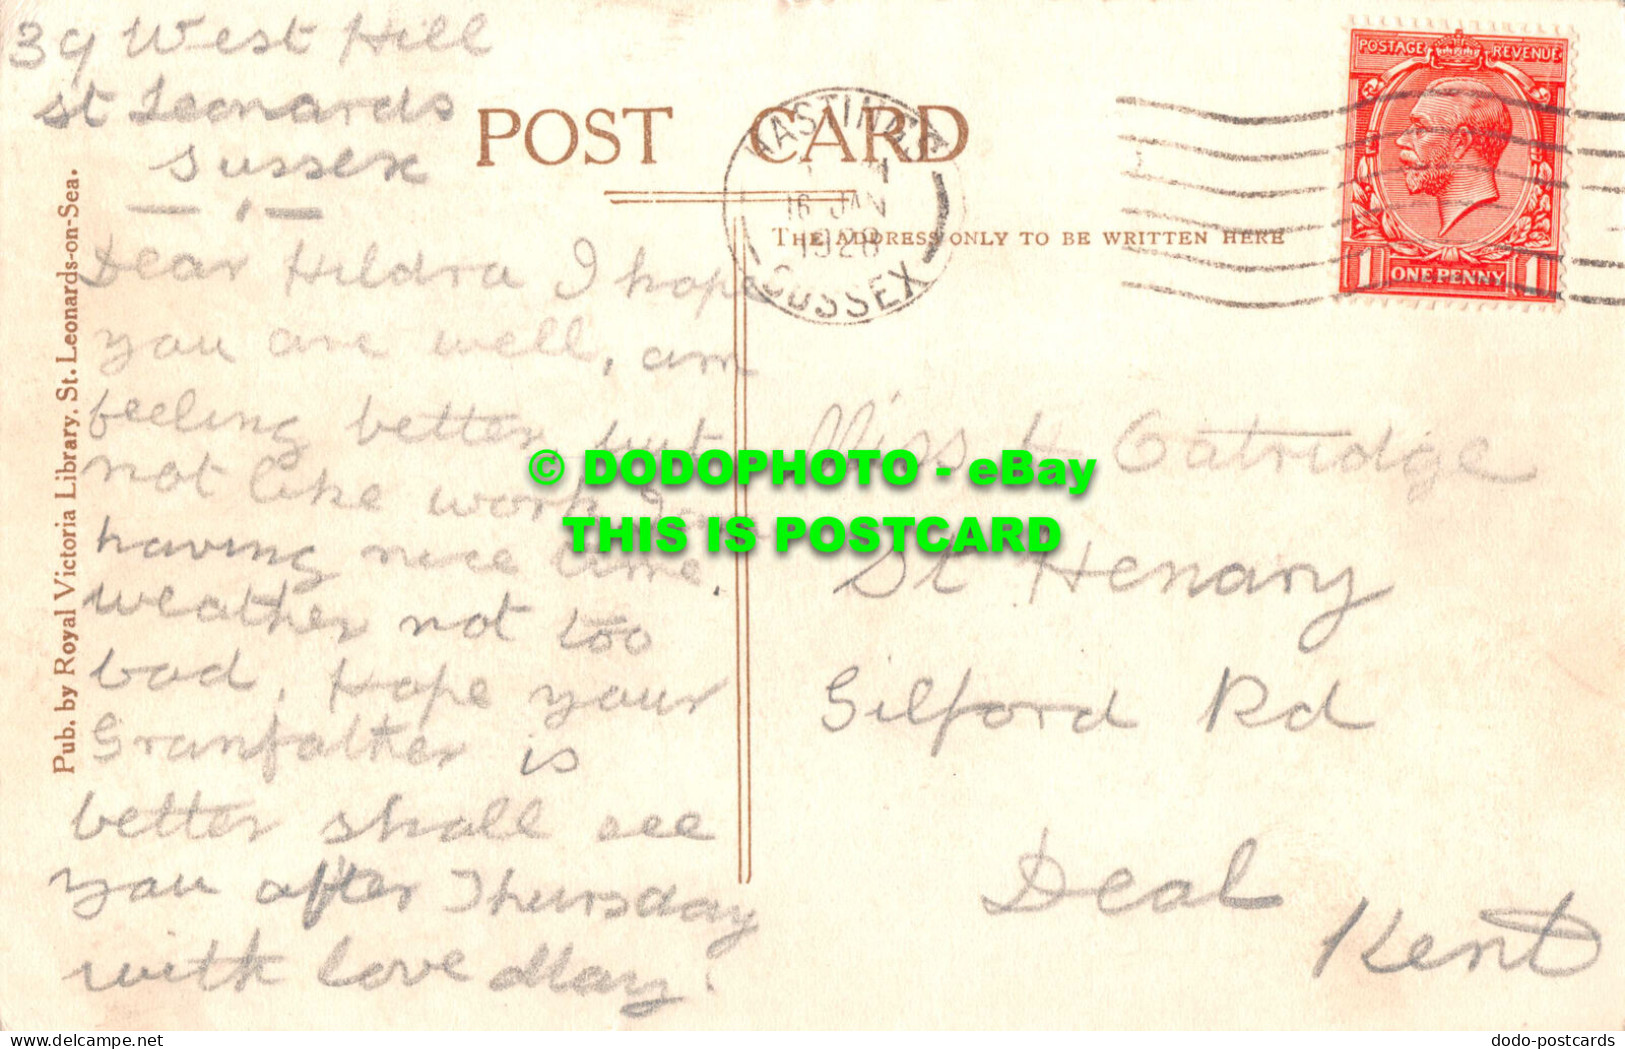 39 West Hill
St Leonards
Sussex
POST CARD
HASTINGS
16 JAN
1928
SUSSEX
POSTAGE REVENUE
1 ONE PENNY 1
THE ADDRESS ONLY TO BE WRITTEN HERE
Pub. by Royal Victoria Library, St. Leonards-on-Sea.
Dear Hildra I hope
you are well, am
feeling better but
not like work I am
having nice time.
weather not too
bad. Hope your
Granfather is
better shall see
you after Thursday
with love May.
Miss H Gatridge
St Henary
Gilford Rd
Deal
Kent
© DODOPHOTO - eBay
THIS IS POSTCARD
dodo-postcards